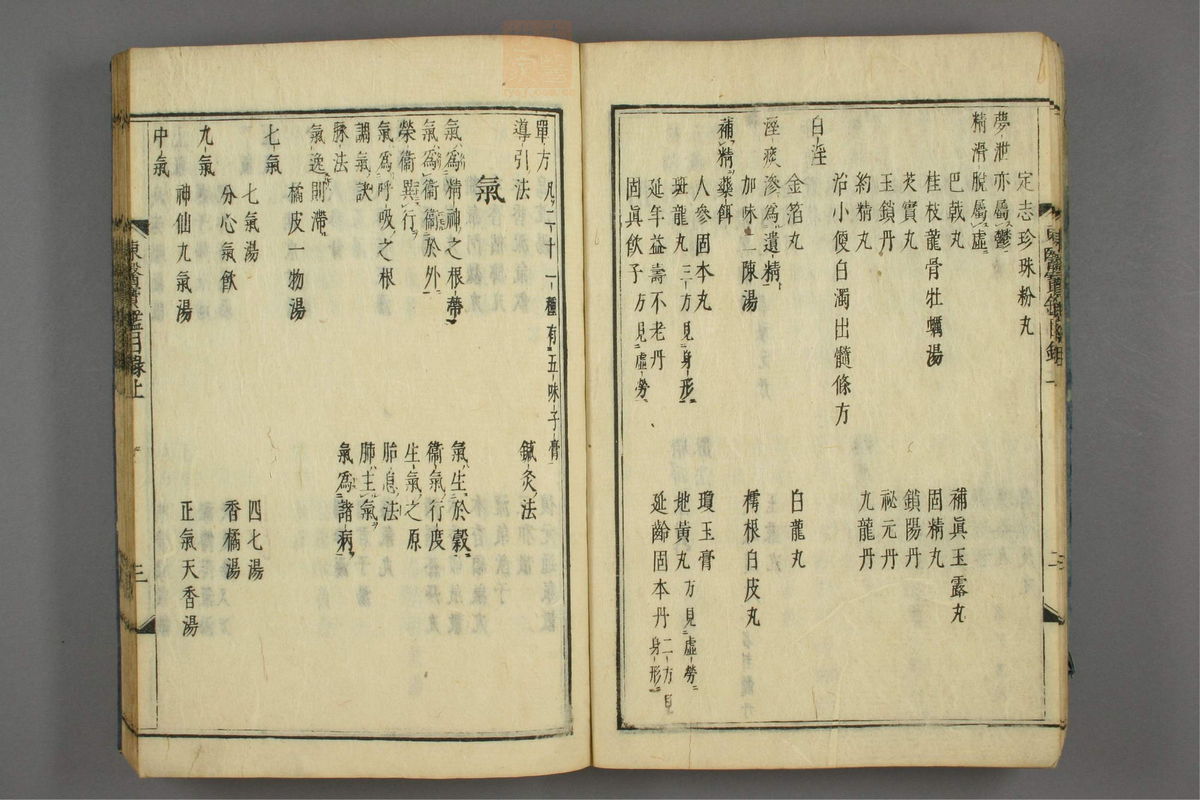 定志珍珠粉丸
夢泄亦屬鬱
精滑脫屬虛
巴戟丸 補眞玉露丸
桂枝龍骨牡蠣湯 固精丸
芡實丸 鎖陽丹
玉鎖丹 祕元丹
約精丸 九龍丹
治小便白濁出髓條方
白淫
金箔丸 白龍丸
滲爲遺精
加味二陳湯 樗根白皮丸
補精藥餌
人參固本丸 瓊玉膏
斑龍丸 三方見身形 地黃丸 方見虛勞
延年益壽不老丹 延齡固本丹 二方見身形
固眞飲子 方見虛勞
單方 凡二十一種有五味子膏
導引法 鍼灸法
氣
氣爲精神之根蔕 氣生於穀
氣爲衞衞於外 衞氣行度
榮衞異行 生氣之原
氣爲呼吸之根 胎息法
調氣訣 肺主氣
脉法 氣爲諸病
氣逸則滯
橘皮一物湯
七氣
七氣湯 四七湯
分心氣飲 香橘湯
九氣
神仙九氣湯 正氣天香湯
中氣
東醫寶鑑目錄上 三